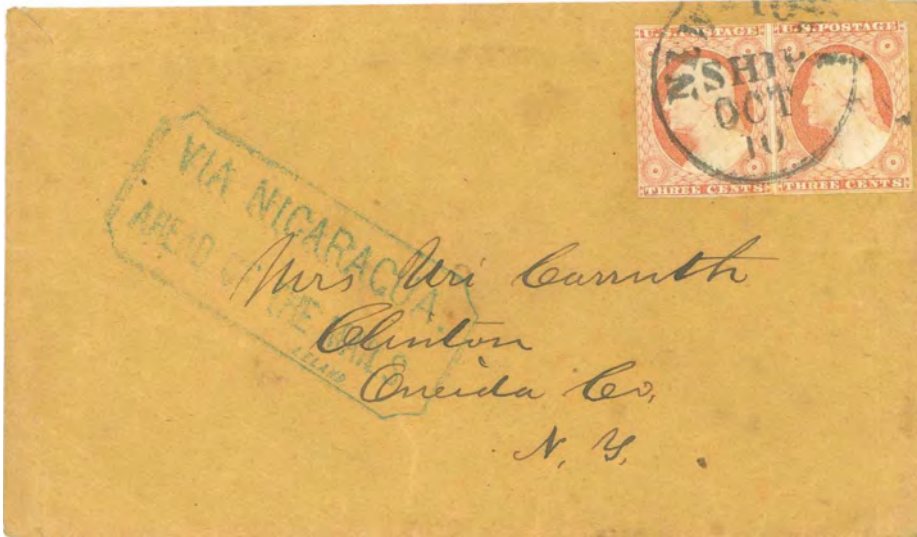 U.S. POSTAGE U.S. POSTAGE
NEW-YO
SHIP
OCT
10
THREE CENTS THREE CENTS
VIA NICARAGUA.
AHEAD OF THE MAILS
LELAND
Mrs Uri Carruth
Clinton
Oneida Co,
N. Y.